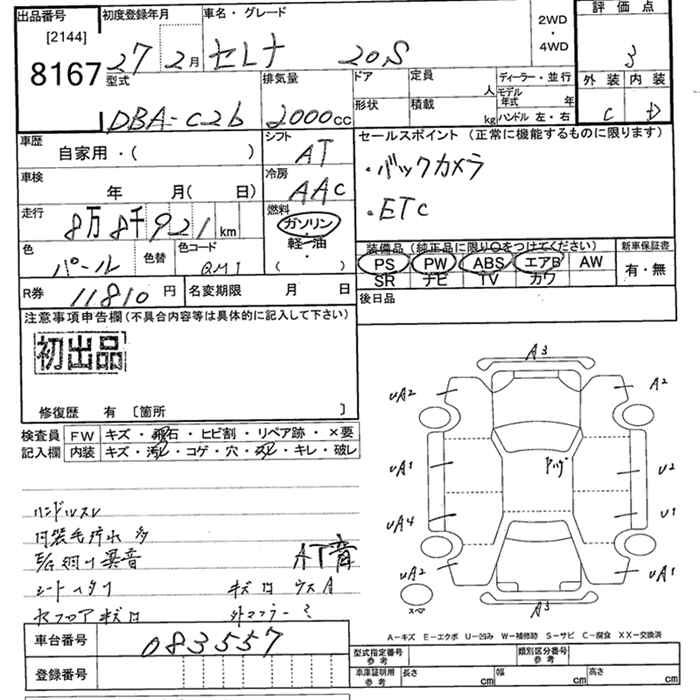 出品番号 初度登録年月 車名・グレード 2WD・4WD 評価点
[2144]
8167 27年2月 セレナ 20S 3
型式 排気量 ドア 定員 人 ディーラー・並行 外装 内装
DBA-C26 2000cc 形状 積載 kg モデル年式 年 ハンドル 左・右 C D
車歴 自家用・( ) シフト AT
セールスポイント (正常に機能するものに限ります)
・バックカメラ
・ETC
車検 年 月( 日) 冷房 AAC
走行 8万8千921km 燃料 ガソリン・軽油・( )
色 パール 色替 色コード QM1
装備品 (純正品に限り○をつけてください) 新車保証書
PS PW ABS エアB AW 有・無
SR ナビ TV カワ
R券 11810円 名変期限 月 日
後日品
注意事項申告欄(不具合内容等は具体的に記入して下さい)
初出品
修復歴 有 〔箇所 〕
検査員 FW キズ・飛石・ヒビ割・リペア跡・×要
記入欄 内装 キズ・汚レ・コゲ・穴・スレ・キレ・破レ
ハンドルスレ
異音 AT音
シート
キズ
A3
UA2 A2
UA1 U2
UA4 U1
UA2 UA1
スペ A3
A−キズ E−エクボ U−凹み W−補修跡 S−サビ C−腐食 XX−交換済
車台番号 083557
登録番号
型式指定番号参考 類別区分番号参考
車庫証明用参考 長さ cm 幅 cm 高さ cm